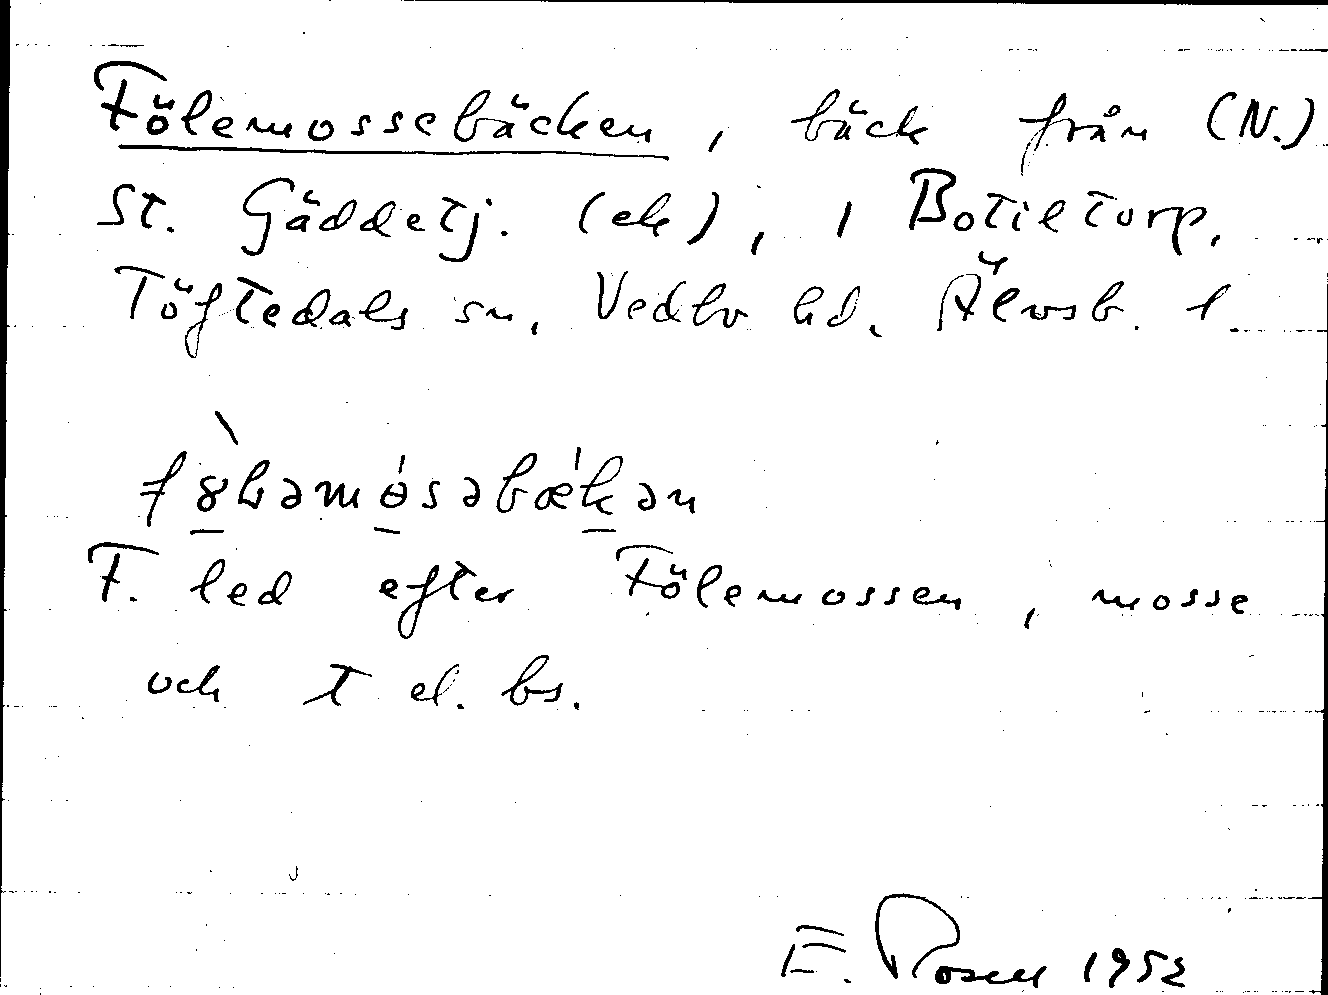 Fölemossebäcken, bäck från (N.)
St. Gäddetj. (ek), i Botiltorp,
Töftedals sn, Vedbo hd. Älvsb. l
F. led efter Fölemossen, mosse
och t el. bs.
E. Rosell 1952